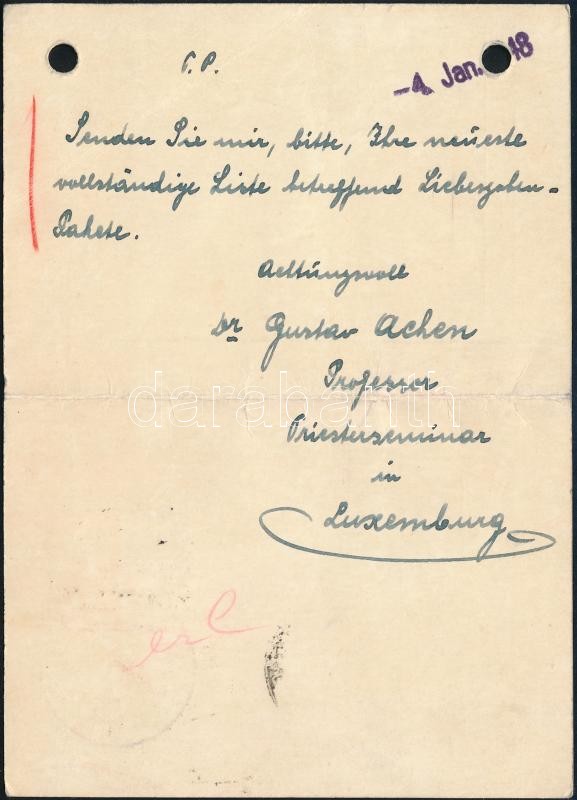 T. P.
-4. Jan. 48
Senden Sie mir, bitte, Ihre neueste
vollständige Liste betreffend Liebesgaben-
Pakete.
Achtungsvoll
Dr Gustav Achen
Professor
Priesterseminar
in
Luxemburg
darabanth
erl